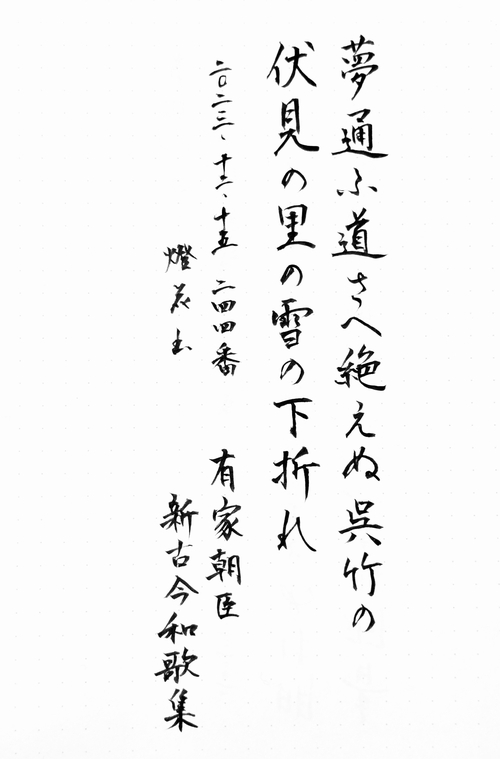 夢通ふ道さへ絶えぬ呉竹の
伏見の里の雪の下折れ
二〇二三、十二、十五 二四四番
有家朝臣
燈花
新古今和歌集